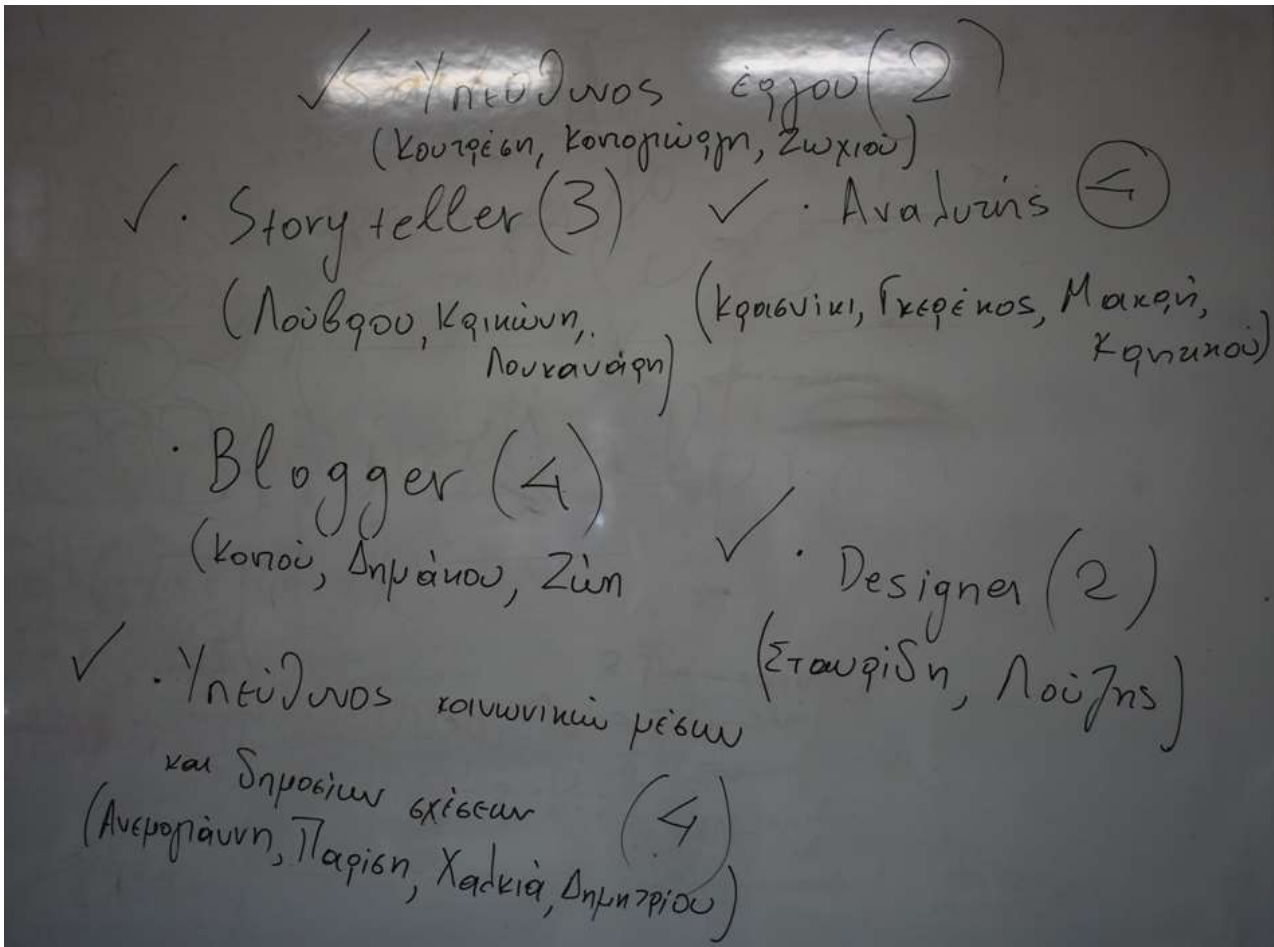 ✓ Υπεύθυνος έργου (2)
(Κουτρέση, Κοντογιώργη, Ζωχιού)
✓ · Storyteller (3)
(Λούβρου, Κρικώνη,
Λουκανάρη)
✓ · Αναλυτής (4)
(Κρασνίκι, Γκερέκος, Μακρή,
Κρητικού)
· Blogger (4)
(Κοντού, Δημάκου, Ζώη
✓ · Designer (2)
(Σταυρίδη, Λούζης)
✓ · Υπεύθυνος κοινωνικών μέσων
και δημοσίων σχέσεων (4)
(Ανεμογιάννη, Παρίση, Χαλκιά, Δημητρίου)